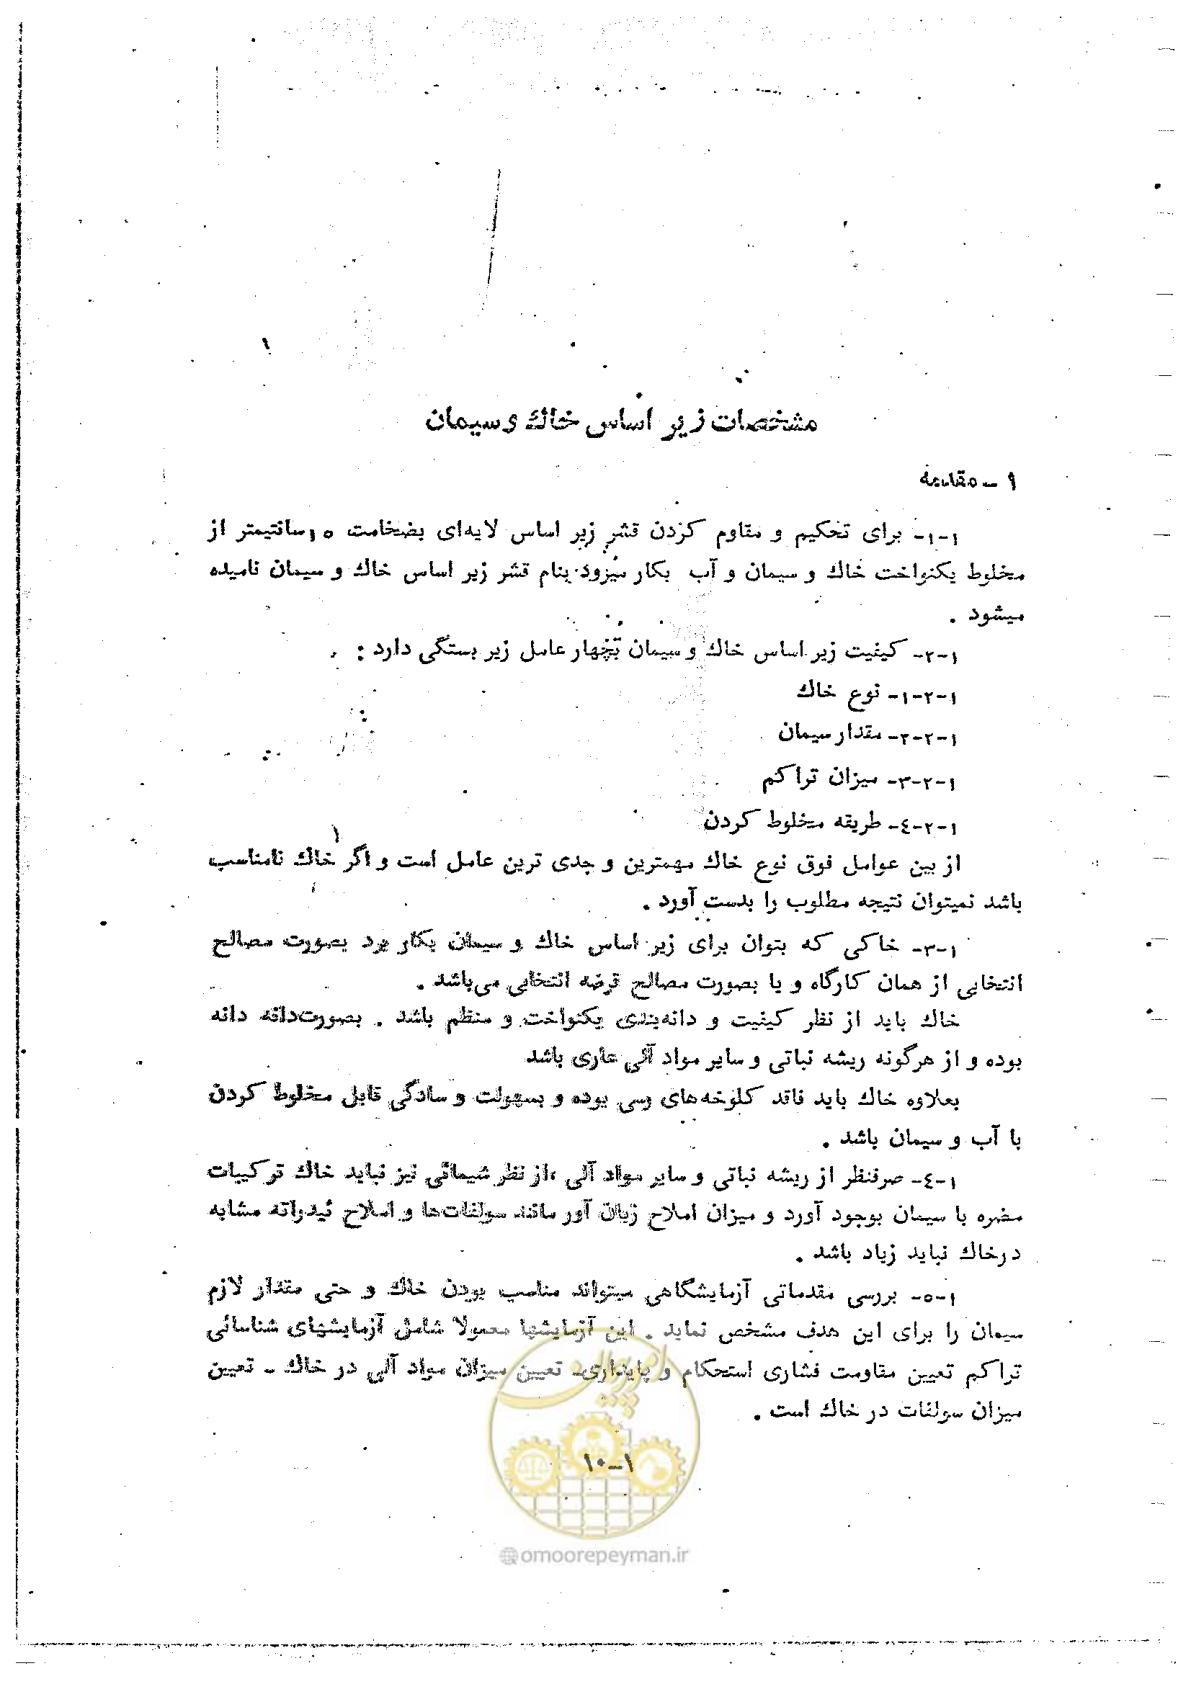 مشخصات زیر اساس خاك و سیمان
۱ – مقدمه
۱-۱- برای تحکیم و مقاوم کردن قشر زیر اساس لایه‌ای بضخامت ۱۵ سانتیمتر از
مخلوط یکنواخت خاك و سیمان و آب بکار میرود بنام قشر زیر اساس خاك و سیمان نامیده
میشود .
۱-۲- کیفیت زیر اساس خاك و سیمان بچهار عامل زیر بستگی دارد :
۱-۲-۱- نوع خاك
۱-۲-۲- مقدار سیمان
۱-۲-۳- میزان تراکم
۱-۲-۴- طریقه مخلوط کردن
از بین عوامل فوق نوع خاك مهمترین و جدی ترین عامل است و اگر خاك نامناسب
باشد نمیتوان نتیجه مطلوب را بدست آورد .
۱-۳- خاکی که بتوان برای زیر اساس خاك و سیمان بکار برد بصورت مصالح
انتخابی از همان کارگاه و یا بصورت مصالح قرضه انتخابی می‌باشد .
خاك باید از نظر کیفیت و دانه‌بندی یکنواخت و منظم باشد . بصورت‌دانه دانه
بوده و از هرگونه ریشه نباتی و سایر مواد آلی عاری باشد
بعلاوه خاك باید فاقد کلوخه‌های رسی بوده و بسهولت و سادگی قابل مخلوط کردن
با آب و سیمان باشد .
۱-۴- صرفنظر از ریشه نباتی و سایر مواد آلی ،از نظر شیمائی نیز نباید خاك ترکیبات
مضره با سیمان بوجود آورد و میزان املاح زیان آور مانند سولفات‌ها و املاح ئیدراته مشابه
درخاك نباید زیاد باشد .
۱-۵- بررسی مقدماتی آزمایشگاهی میتواند مناسب بودن خاك و حتی مقدار لازم
سیمان را برای این هدف مشخص نماید . این آزمایشها معمولا شامل آزمایشهای شناسائی
تراکم تعیین مقاومت فشاری استحکام و پایداری– تعیین میزان مواد آلی در خاك – تعیین
میزان سولفات در خاك است .
۱۰–۱
@omoorepeyman.ir